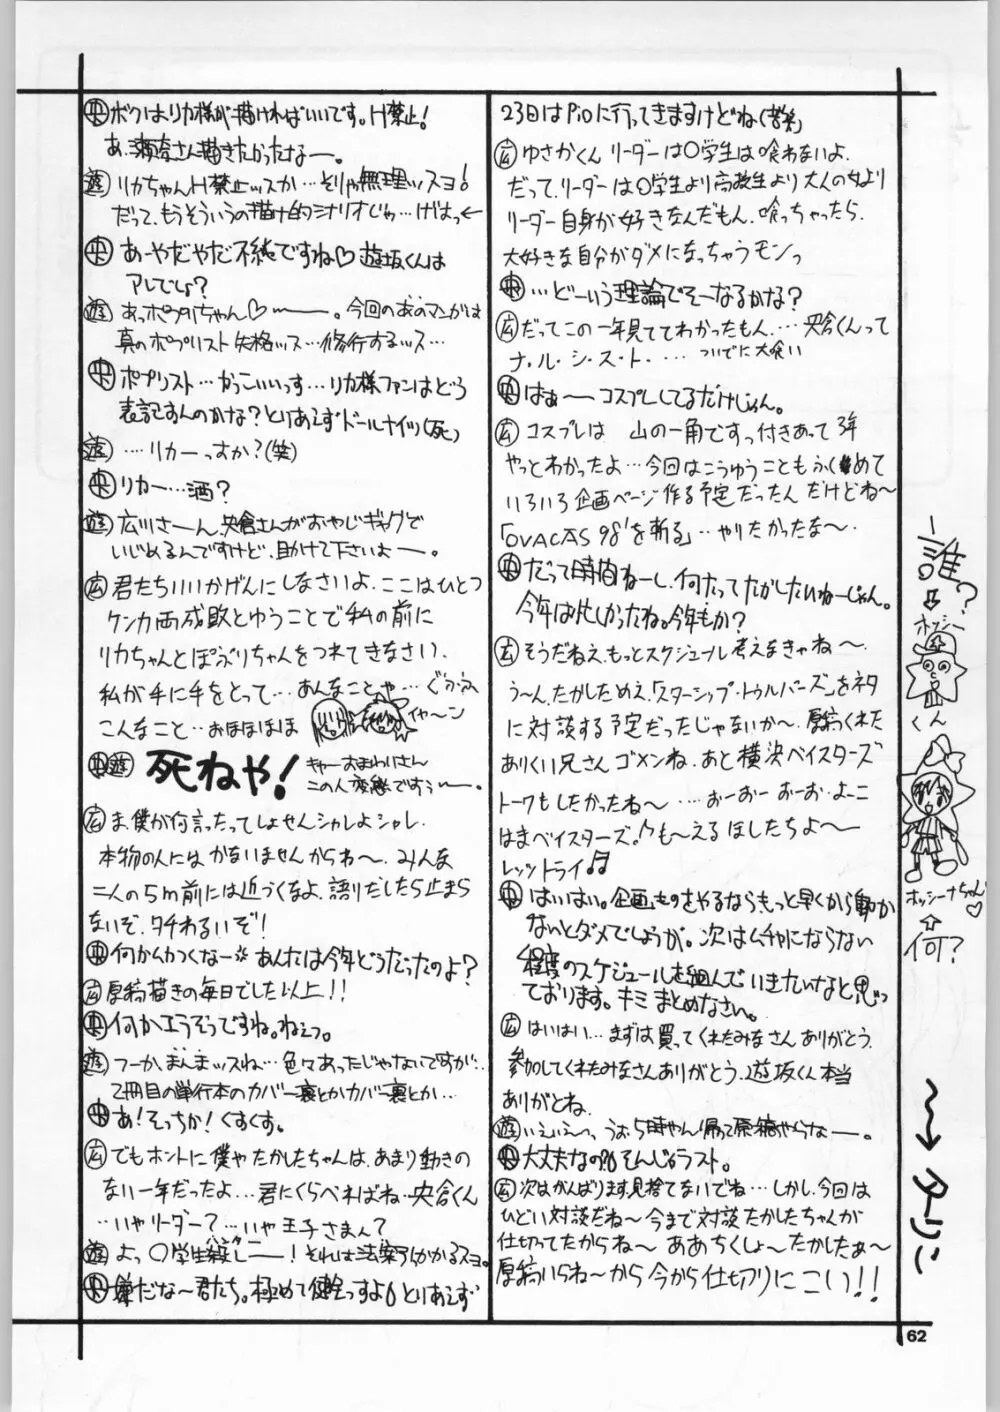 央 ボクはリカ様が描ければいいです。H禁止!
あ、瀬奈さん描きたかったなー。
遊 リカちゃんH禁止ッスか…そりゃ無理ッスヨ!
だって、もうそういうの描け的シナリオじゃ…げはっ←
央 あーやだやだ不純ですね♡遊坂くんは
アレでしょ?
遊 あっポプリちゃん♡〜〜。今回のあのマンガは
真のポプリスト失格ッス…修行するッス…
央 ポプリスト…かっこいいっす…リカ様ファンはどう
表記すんのかな?とりあえずドールナイツ(死)
遊 ….リカーっすか?(笑)
央 リカー…酒?
遊 広川さーん、央倉さんがおやじギャグで
いじめるんですけど、助けて下さいよー。
広 君たちいいかげんにしなさいよ.ここはひとつ
ケンカ両成敗とゆうことで私の前に
リカちゃんとぽぷりちゃんをつれてきなさい.
私が手に手をとって…あんなことや…ぐふふ
こんなこと…おほほほほ
イヤ〜ン
央遊 死ねや!
キャーおまわりさん
この人変態ですぅー。
広 ま、僕が何言ったってしょせんシャレよシャレ.
本物の人にはかないませんからね〜.みんな
二人の5m前には近づくなよ.語りだしたら止まら
ないぞ.タチわるいぞ!
央 何かムカつくなー※あんたは今年どうだったのよ?
広 原稿描きの毎日でした以上!!
央 何かエラそうですね。ねえっ。
遊 つーか、まんまッスね…色々あったじゃないですが…
2冊目の単行本のカバー裏とかカバー裏とか…
央 あ!そっちか!くすくす。
広 でもホントに僕やたかしたちゃんは、あまり動きの
ない一年だったよ…君にくらべればね…央倉くん
…いやリーダー?…いや王子さまぁ?
遊 よっ○学生殺しー!それは法案にひっかかるスヨ。
ハンター
央 嫌だな〜君たち。極めて健全っすよ。とりあえず
23日はPiOに行ってきますけどね(苦笑)
広 ゆさかくんリーダーは○学生は喰わないよ.
だって.リーダーは○学生より高校生より大人の女より
リーダー自身が好きなんだもん.喰っちゃったら.
大好きな自分がダメになっちゃうモンっ
央 …どーいう理論でそーなるかな?
広 だってこの一年見ててわかったもん….央倉くんって
ナ・ル・シ・ス・ト・…ついでに大喰い
央 はぁ〜コスプレしてるだけじゃん。
広 コスプレは 山の一角ですっ付きあって3年
やっとわかったよ…今回はこうゆうこともふくめて
いろいろ企画ページ作る予定だったんだけどね〜
「OVACAS 98'を斬る」…やりたかったな〜.
央 だって時間ねーし、何たってたかしたいねーじゃん。
今年は忙しかったね。今年もか?
広 そうだねえ.もっとスケジュール考えなきゃね〜.
う〜ん、たかしためえ.「スターシップ・トゥルパーズ」をネタ
に対談する予定だったじゃないか〜.原稿くれた
ありくい兄さんゴメンね.あと横浜ベイスターズ
トークもしたかったね〜…おーおー おーお.よーこ
はまベイスターズ!♪も〜えるほしたちよ〜
レッツトライ♫
央 はいはい。企画ものをやるなら、もっと早くから動か
ないとダメでしょうが。次はムチャにならない
程度のスケジュールを組んでいきたいなと思っ
ております。キミまとめなさい。
広 はいはい…まずは買ってくれたみなさんありがとう.
参加してくれたみなさんありがとう.遊坂くん本当
ありがとね.
遊 いえいえ〜っ うお、5時やん帰って原稿やらなー。
央 大丈夫なの? そんじゃラスト。
広 次はがんばります.見捨てないでね…しかし、今回は
ひどい対談だね〜今まで対談たかしたちゃんが
仕切ってたからね〜 ああちくしょ〜たかしたぁ〜
原稿いらね〜から今から仕切りにこい!!
誰?
ホッシー
くん
ホッシーナちゃん♡
何?
62